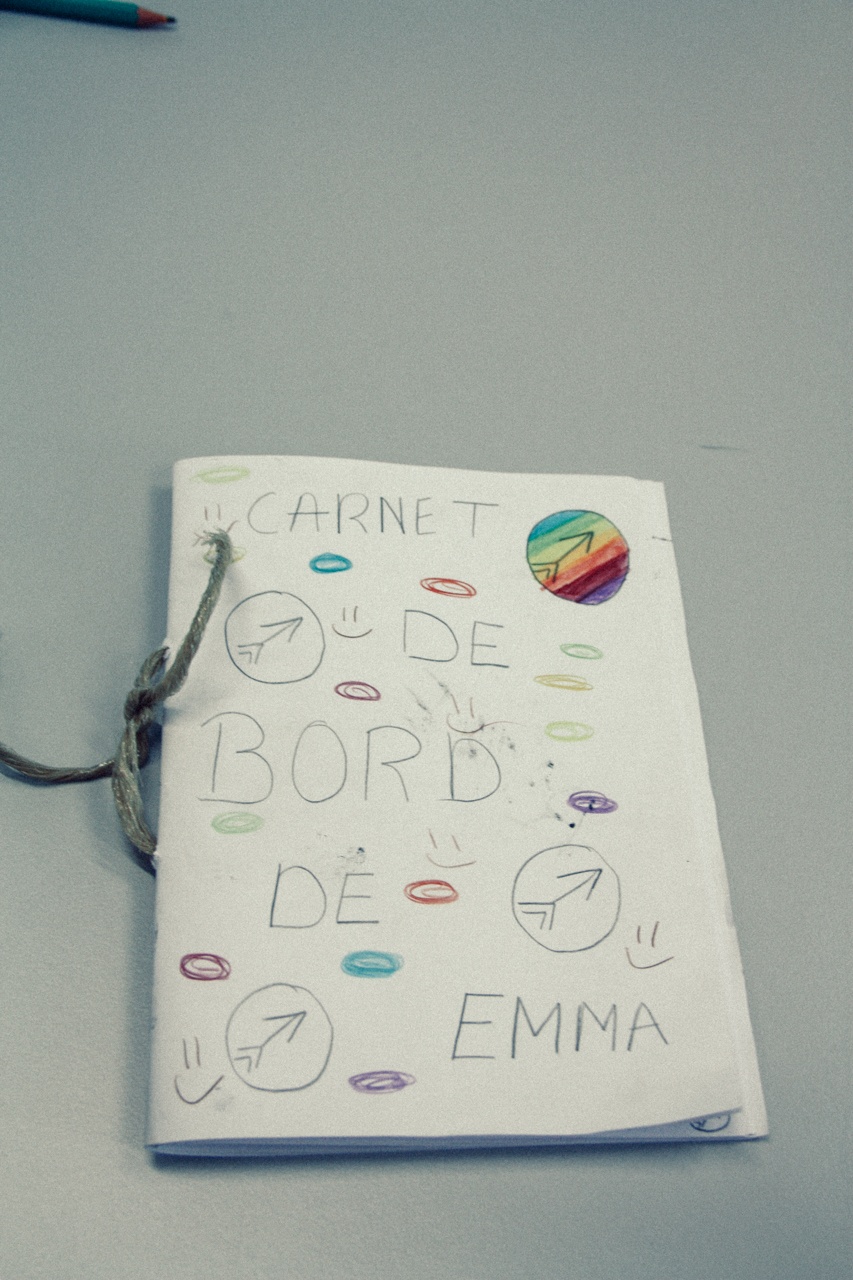 CARNET
DE
BORD
DE
EMMA